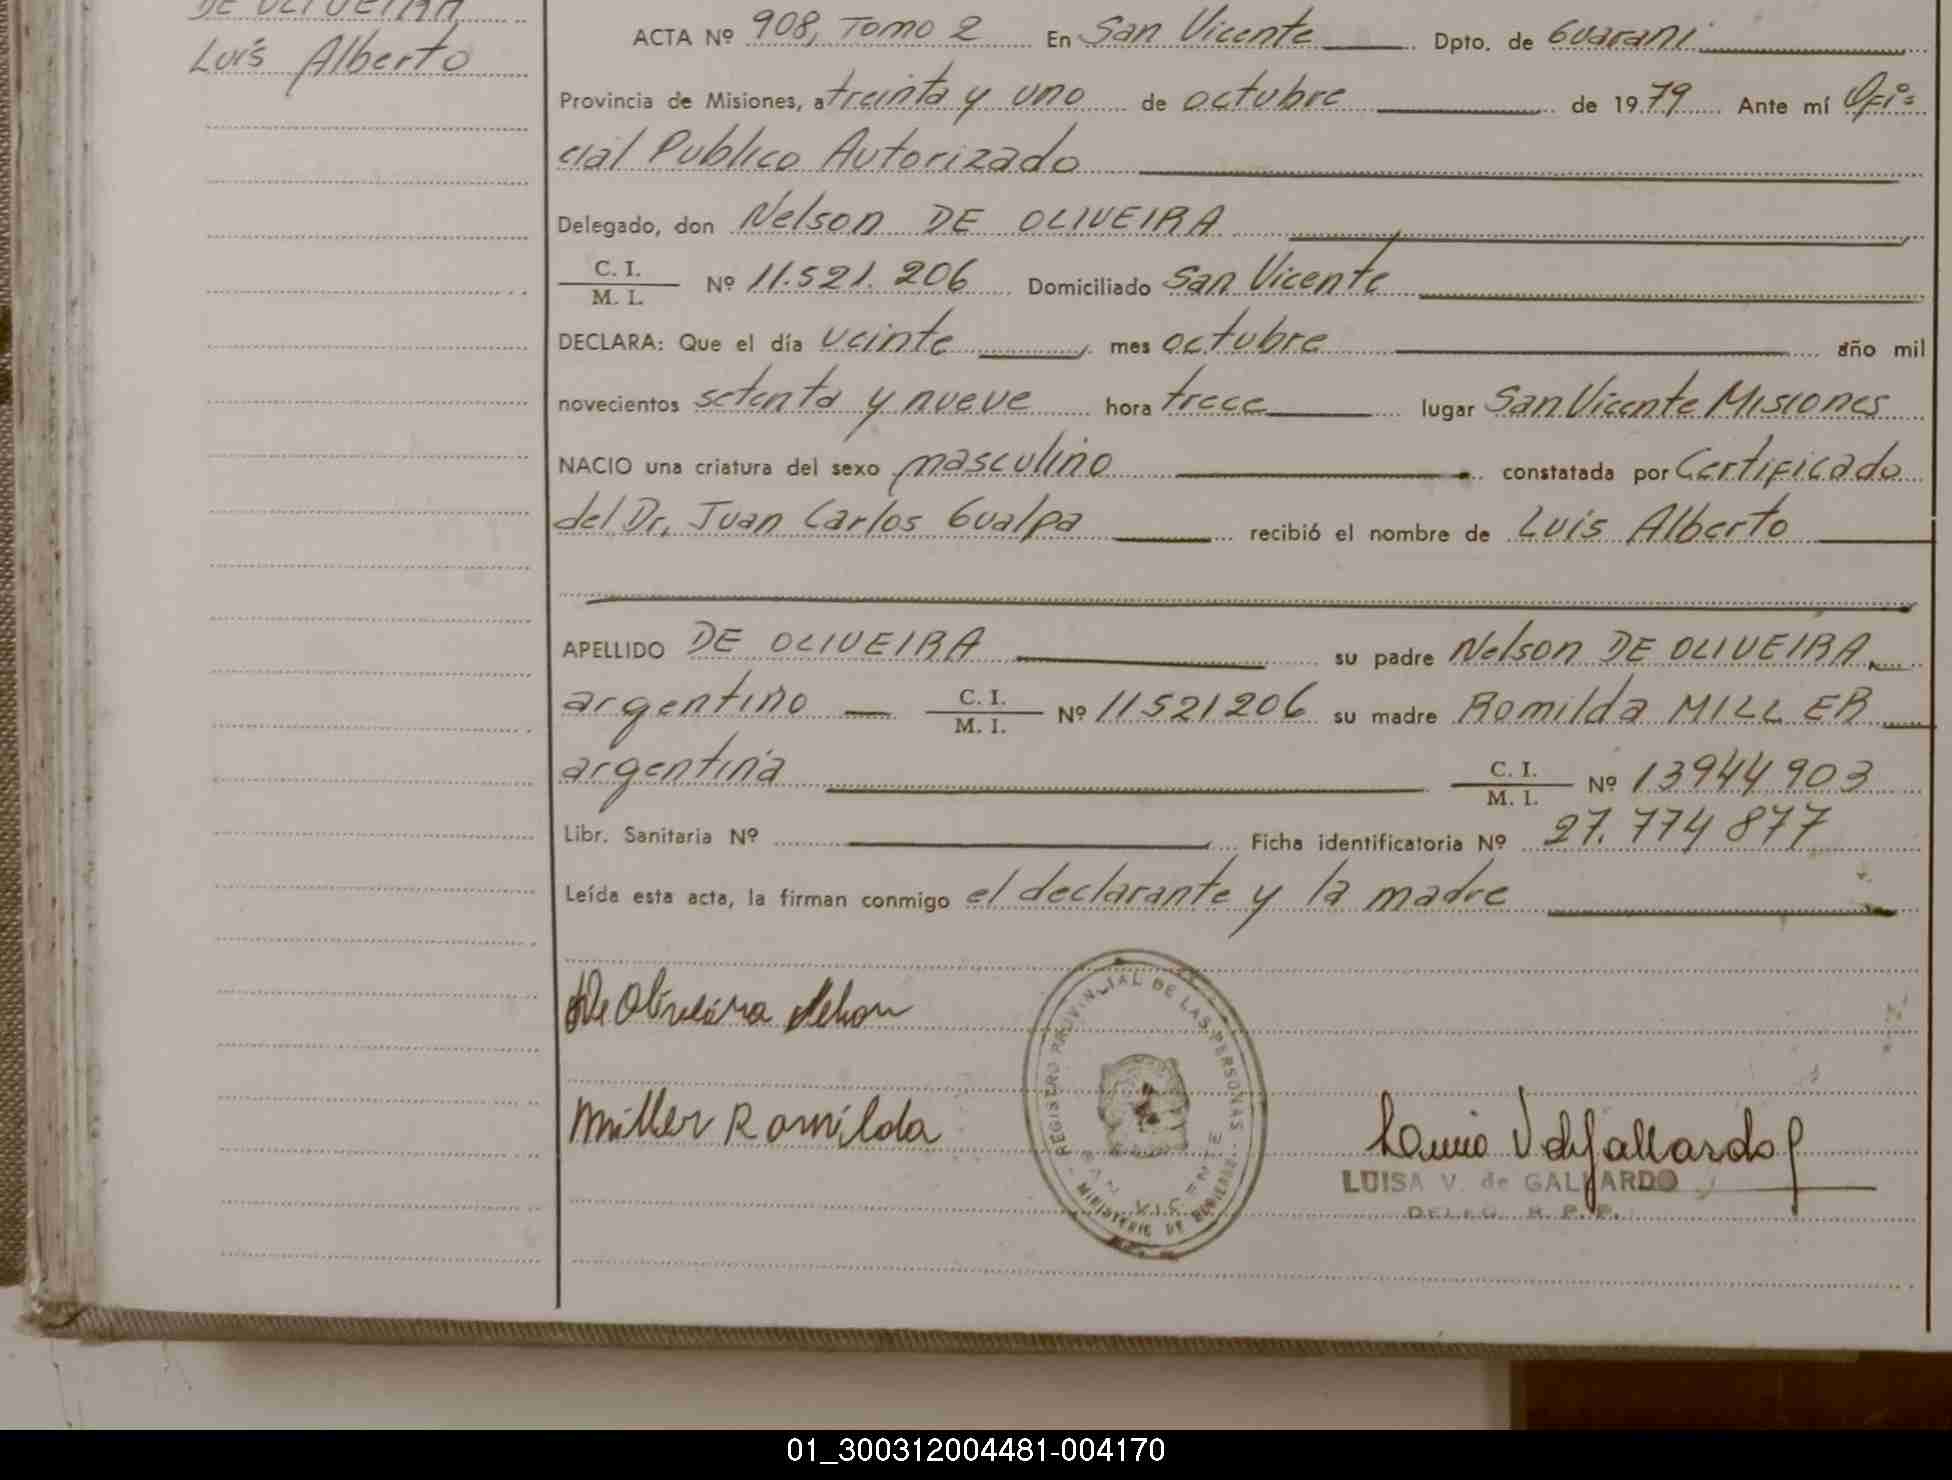 DE OLIVEIRA
Luis Alberto
ACTA Nº 908, Tomo 2 En San Vicente Dpto. de Guarani
Provincia de Misiones, a treinta y uno de octubre de 1979 Ante mí Ofi=
cial Publico Autorizado
Delegado, don Nelson DE OLIVEIRA
C. I.
M. I. Nº 11.521.206 Domiciliado San Vicente
DECLARA: Que el día veinte mes octubre año mil
novecientos setenta y nueve hora trece lugar San Vicente Misiones
NACIO una criatura del sexo masculino constatada por Certificado
del Dr, Juan Carlos Gualpa recibió el nombre de Luis Alberto
APELLIDO DE OLIVEIRA su padre Nelson DE OLIVEIRA
argentino C. I. M. I. Nº 11521206 su madre Romilda MILLER
argentina C. I. M. I. Nº 13944903
Libr. Sanitaria Nº Ficha identificatoria Nº 27.774877
Leída esta acta, la firman conmigo el declarante y la madre
De Oliveira Nelson
REGISTRO PROVINCIAL DE LAS PERSONAS
SAN VICENTE
MINISTERIO DE GOBIERNO
Miller Romilda
LUISA V. de GALLARDO
DELEG. R. P. P.
01_300312004481-004170